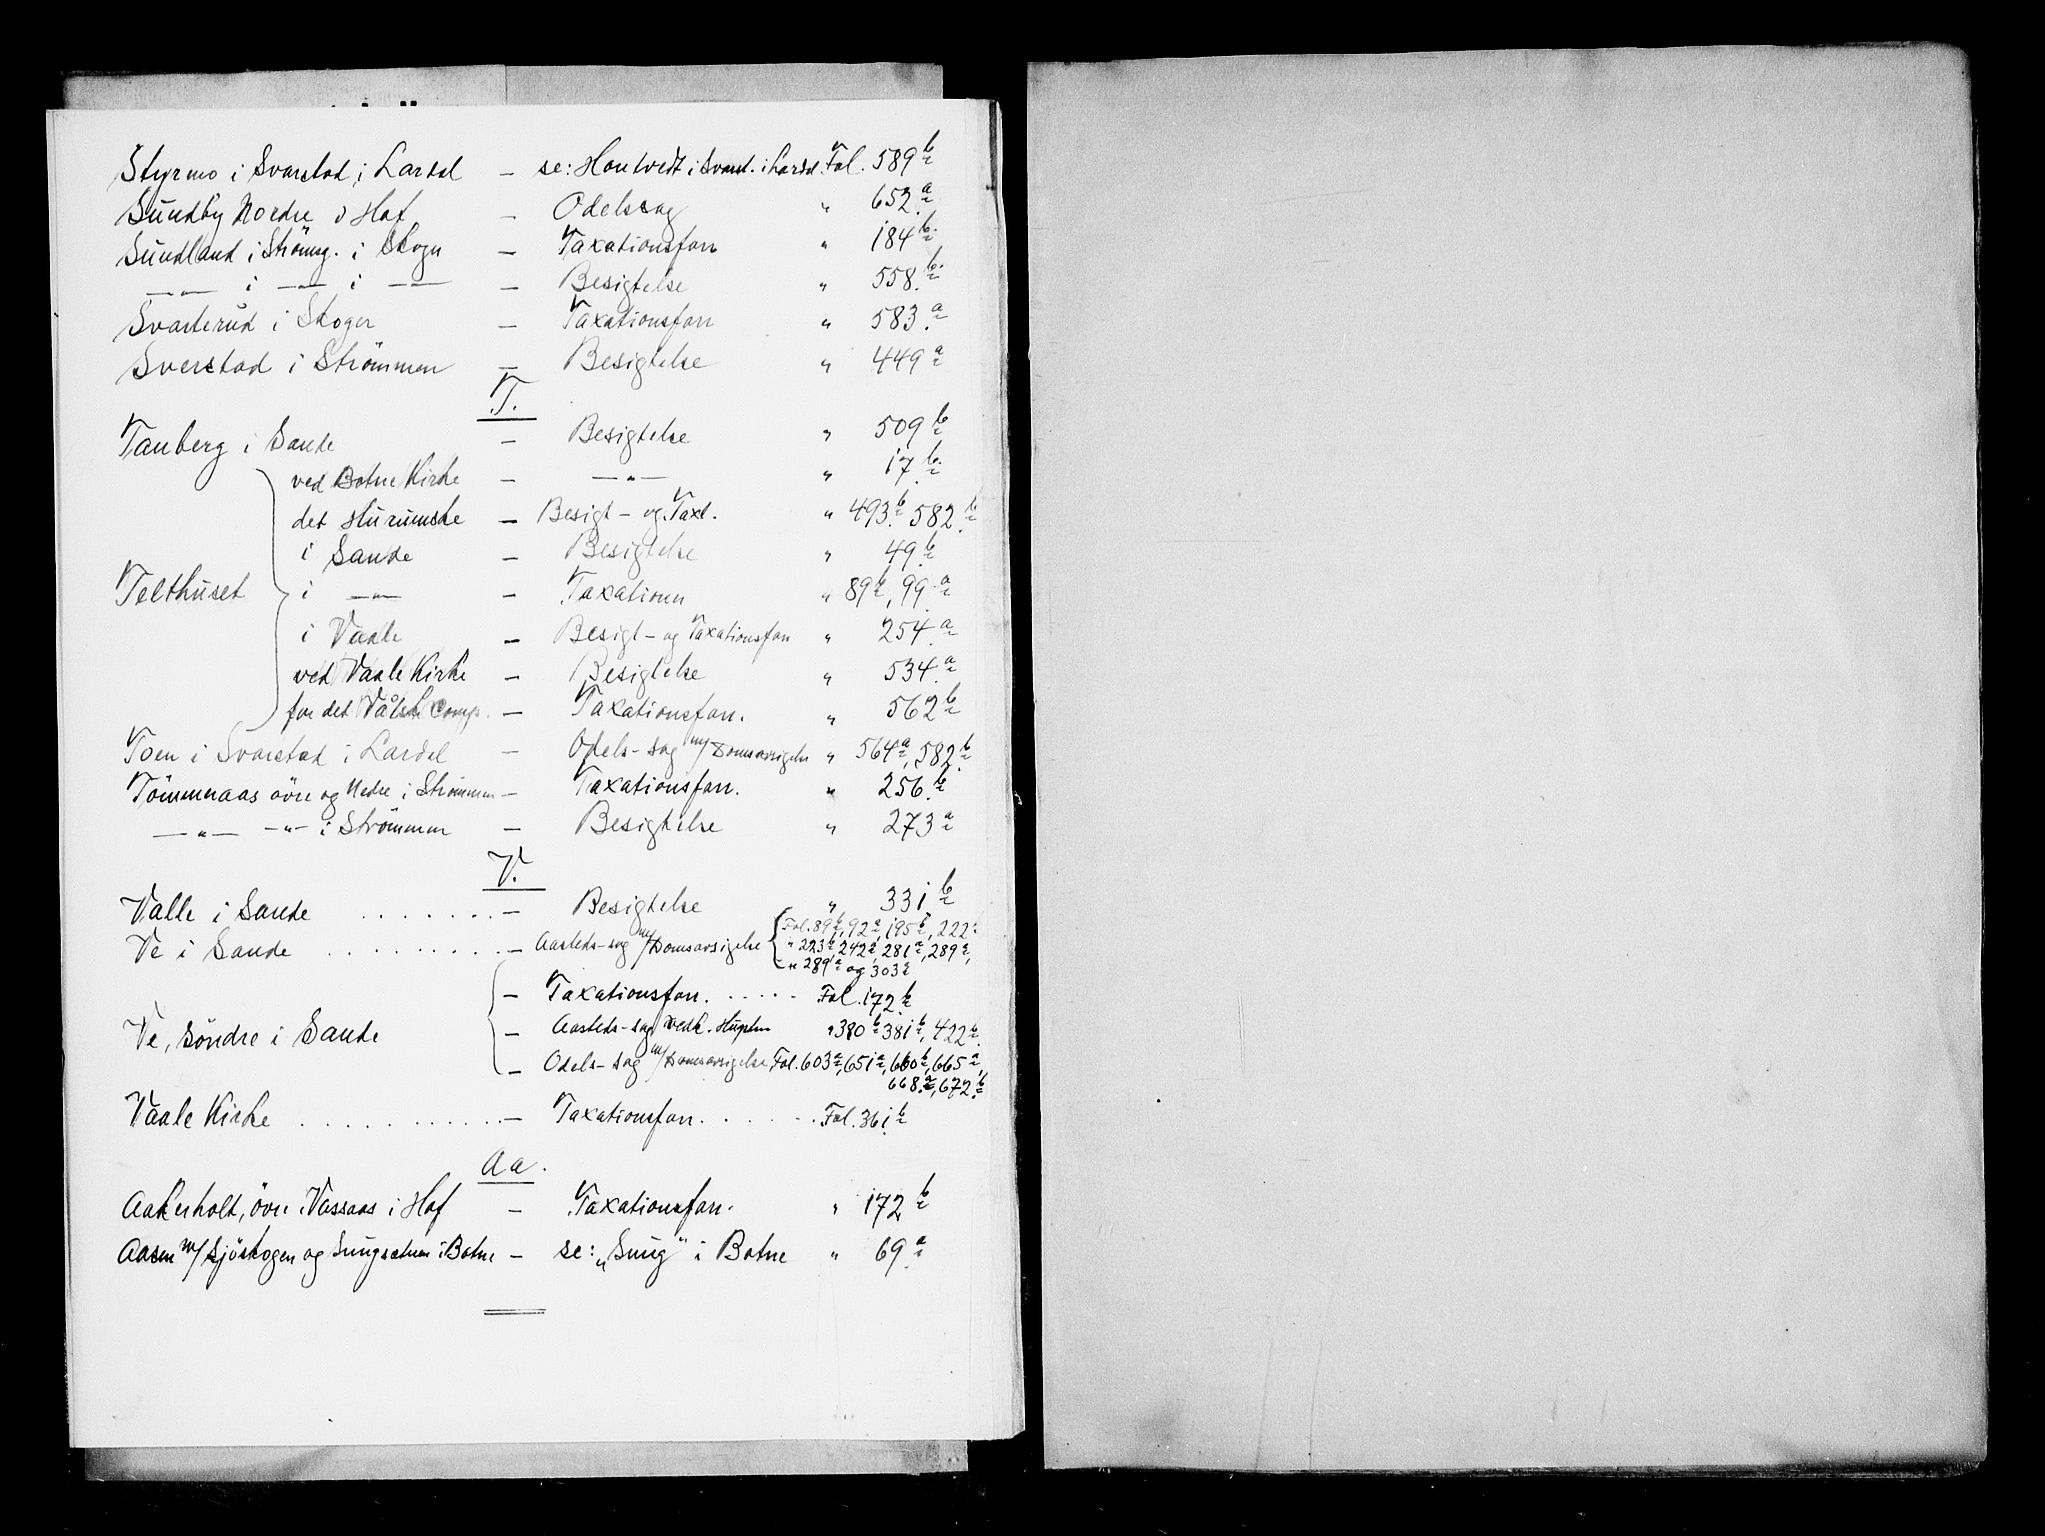 Styrmo i Svarstad i Lardal — se: Hontvedt i Svarst. i Lardal. Fol. 589 b
Sundby Nordre i Hof — Odelssag " 652 a
Sundland i Strömsg. i Skogn — Taxationsforr " 184 b
—"— i —"— i —"— — Besigtelse " 558 b
Svarterud i Skoger — Taxationsforr " 583 a
Sverstad i Strömmen — Besigtelse " 449 a
T.
Tanberg i Sande — Besigtelse " 509 b
ved Botne Kirke — —"— " 17 b
det Hurumske — Besigt- og Taxt. " 493 b 582 b
i Sande — Besigtelse " 49 b
Telthuset i —"— — Taxationn " 89 b, 99 a
i Vaale — Besigt- og Taxationsforr " 254 a
ved Vaale Kirke — Besigtelse " 534 a
for det Vålske Comp. — Taxationsforr. " 562 b
Toen i Svarstad i Lardal — Odels-sag m/Domsavsigelse " 564 a, 582 b
Tömmeraas övre og Nedre i Strömmen — Taxationsforr. " 256 b
—"— —"— i Strömmen — Besigtelse " 273 a
V.
Valle i Sande . . . . . . . — Besigtelse " 331 b
Ve i Sande . . . . . . . . — Aasteds-sag m/Domsavsigelse Fol. 89 b, 92 a, 195 b, 222
" 223 a, 242 a, 281 a, 289 a,
" 289 a og 303 a
— Taxationsforr. . . . . . Fol. 172 b
Ve, Söndre i Sande — Aasteds-sag vedk. " 380 b 381 b, 422 b.
— Odels-sag m/Domsavsigelse, Fol. 603 a, 651 a, 660 b, 665 a,
668 a, 672 b
Vaale Kirke . . . . . . . . . . . — Taxationsforr. . . . . . Fol. 361 b
Aa.
Aakerholt, övre i Vassaas i Hof — Taxationsforr. " 172 b
Aasen m/Sjöskogen og Snugsetua i Botne — se: „Snug" i Botne " 69 a